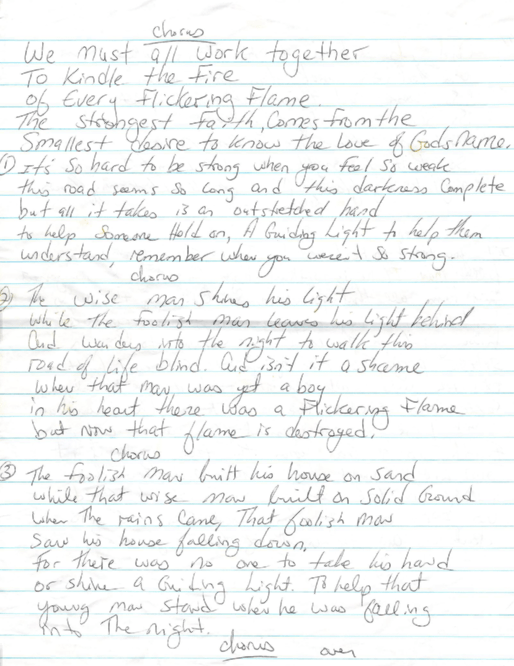 chorus
We must all work together
To Kindle the Fire
of Every Flickering Flame.
The strongest faith, Comes from the
Smallest desire to know the Love of Gods Name.
① It's so hard to be strong when you feel so weak
this road seems so long and this darkness Complete
but all it takes is an outstretched hand
to help Someone Hold on, A Guiding Light to help them
understand, remember when you weren't so strong.
chorus
② The wise man shines his light
while the foolish man leaves his light behind
And wanders into the night to walk this
road of life blind. And isn't it a shame
when that man was yet a boy
in his heart there was a Flickering Flame
but now that flame is destroyed.
Chorus
③ The foolish man built his house on sand
while that wise man built on Solid Ground
when The rains Came, That foolish man
Saw his house falling down,
For there was no one to take his hand
or shine A Guiding Light. To help that
young man stand when he was falling
into The night.
chorus over